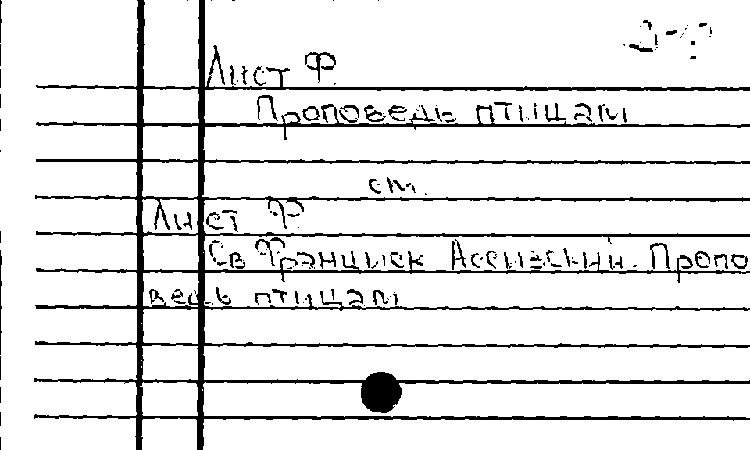 Лист Ф.
Проповедь птицам
см.
Лист Ф.
Св. Франциск Ассизский. Пропо
ведь птицам